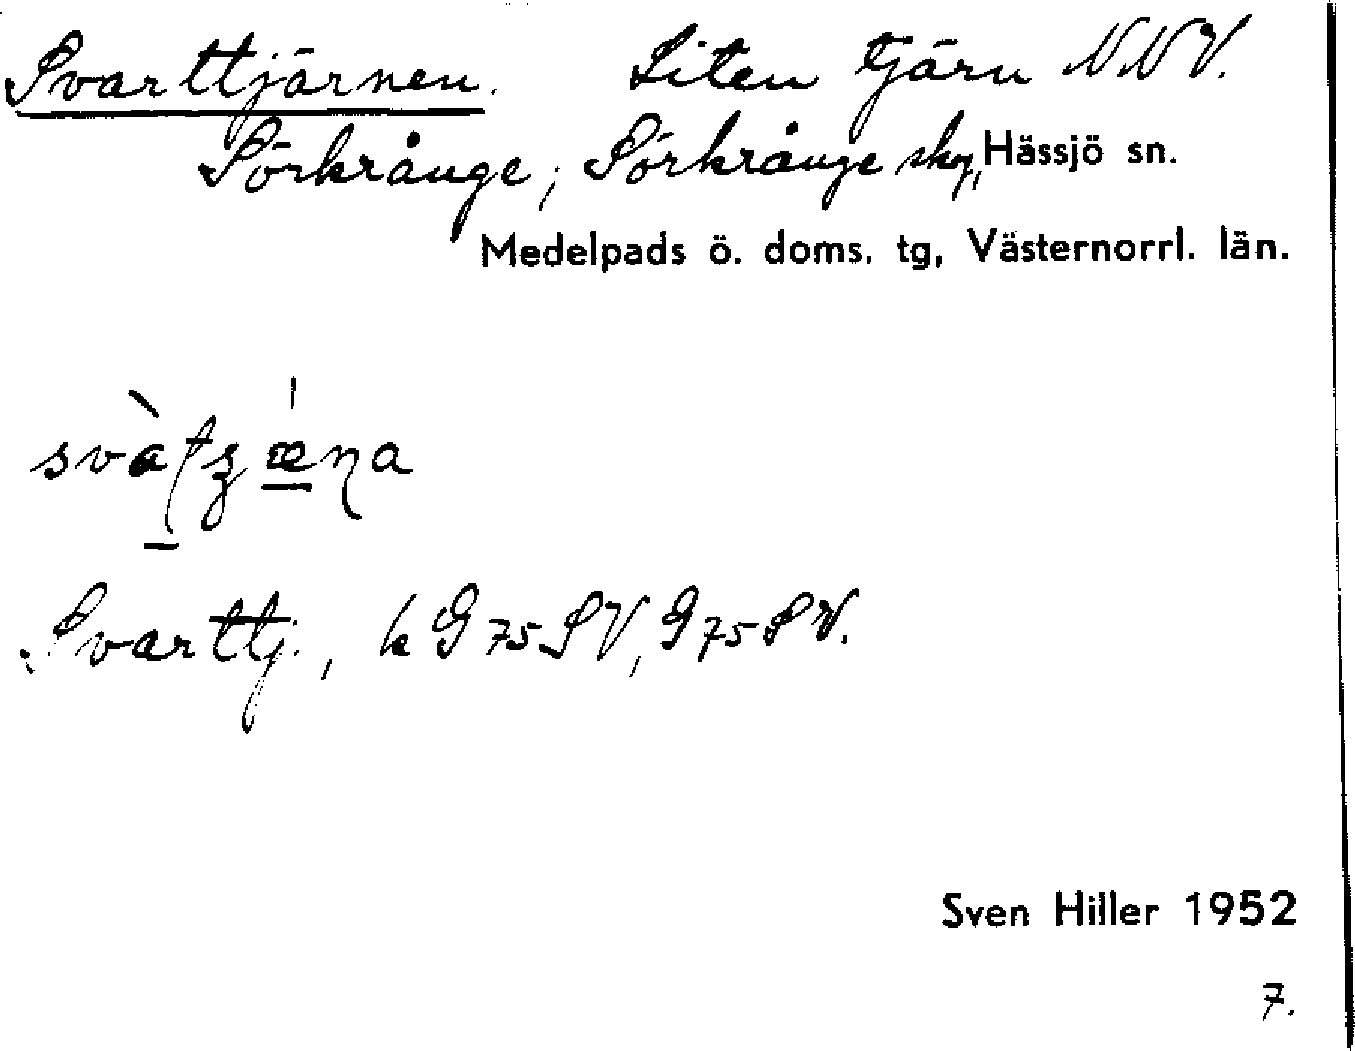 Svarttjärnen. Liten tjärn NNV.
Sörkrånge, Sörkrånge skog, Hässjö sn.
Medelpads ö. doms. tg, Västernorrl. län.
Svarttj., k G75SV, G75SV.
Sven Hiller 1952
7.